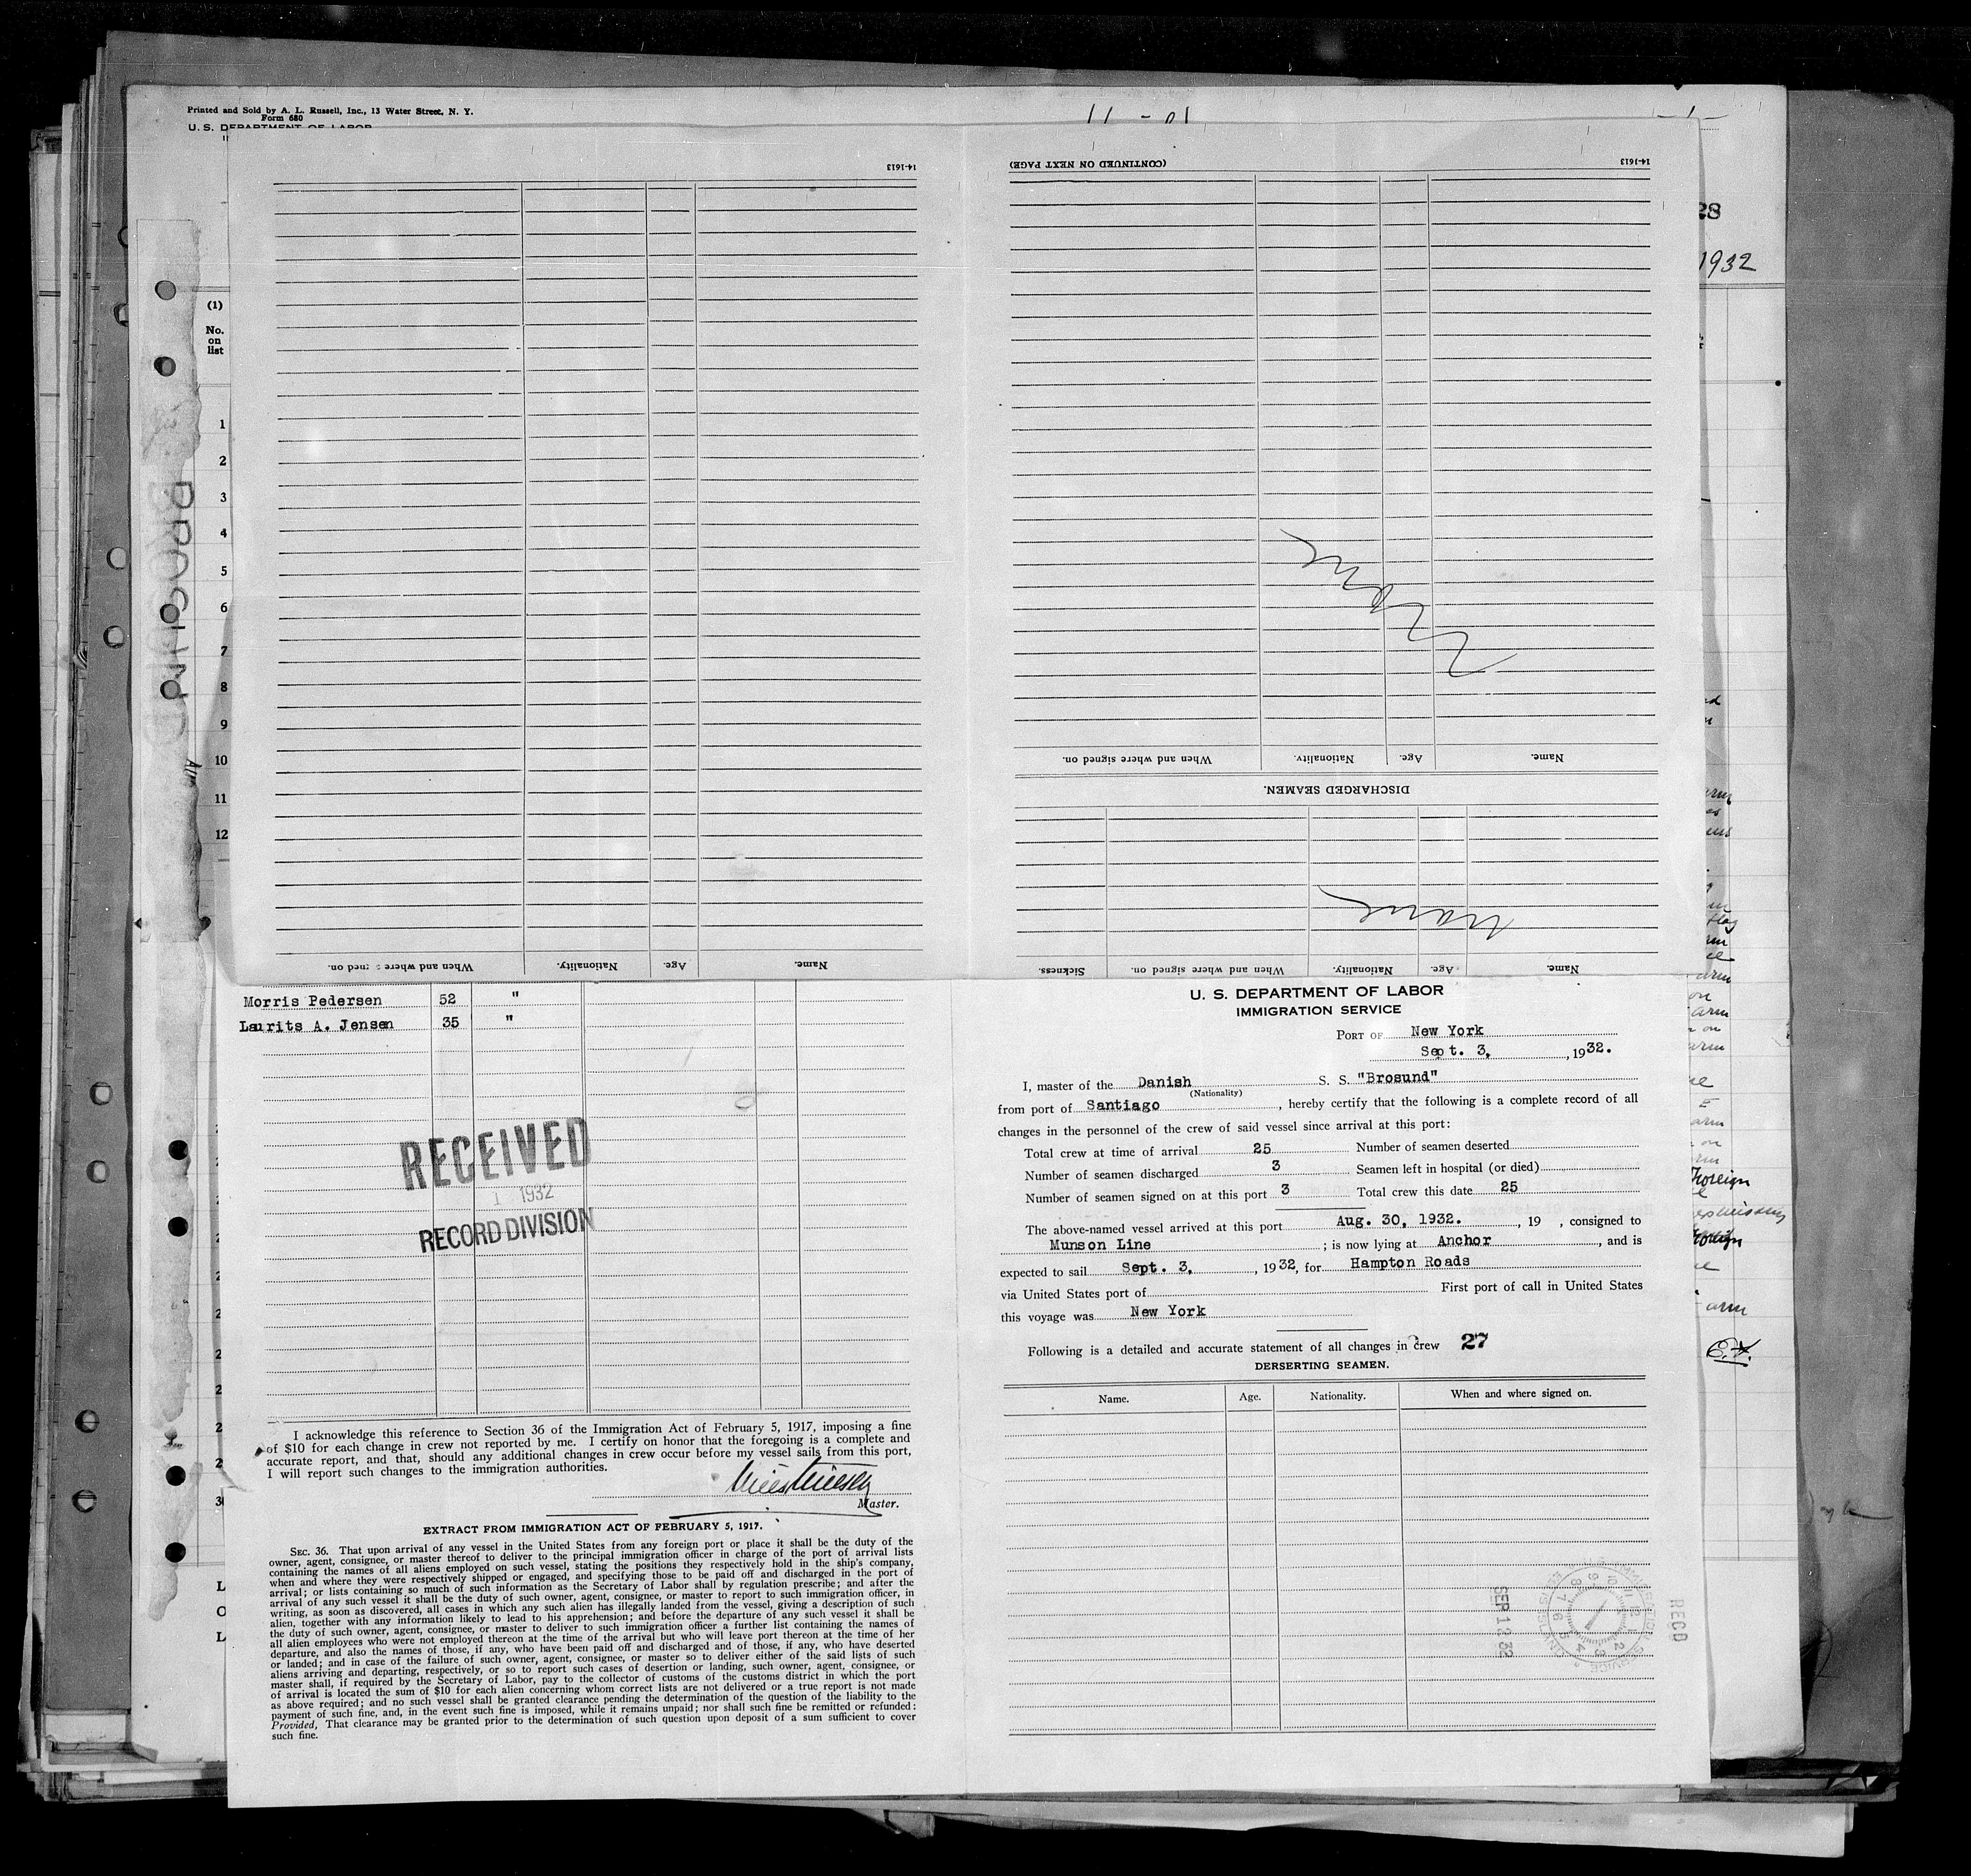 Printed and Sold by A. L. Russell, Inc., 13 Water Street, N. Y.
Form 680
U. S. DEPARTMENT OF LABOR
28
1932
(1)
No.
on
list
1
2
3
4
5
6
7
8
9
10
11
12
14-1613
When and where signed on.
Nationality.
Age.
Name.
(CONTINUED ON NEXT PAGE)
14-1613
When and where signed on.
Nationality.
Age.
Name.
DISCHARGED SEAMEN.
Sickness.
When and where signed on.
Nationality.
Age.
Name.
None
Morris Pedersen 52 "
Laurits A. Jensen 35 "
RECEIVED
1932
RECORD DIVISION
I acknowledge this reference to Section 36 of the Immigration Act of February 5, 1917, imposing a fine
of $10 for each change in crew not reported by me. I certify on honor that the foregoing is a complete and
accurate report, and that, should any additional changes in crew occur before my vessel sails from this port,
I will report such changes to the immigration authorities.
Master.
EXTRACT FROM IMMIGRATION ACT OF FEBRUARY 5, 1917.
SEC. 36. That upon arrival of any vessel in the United States from any foreign port or place it shall be the duty of the
owner, agent, consignee, or master thereof to deliver to the principal immigration officer in charge of the port of arrival lists
containing the names of all aliens employed on such vessel, stating the positions they respectively hold in the ship's company,
when and where they were respectively shipped or engaged, and specifying those to be paid off and discharged in the port of
arrival; or lists containing so much of such information as the Secretary of Labor shall by regulation prescribe; and after the
arrival of any such vessel it shall be the duty of such owner, agent, consignee, or master to report to such immigration officer, in
writing, as soon as discovered, all cases in which any such alien has illegally landed from the vessel, giving a description of such
alien, together with any information likely to lead to his apprehension; and before the departure of any such vessel it shall be
the duty of such owner, agent, consignee, or master to deliver to such immigration officer a further list containing the names of
all alien employees who were not employed thereon at the time of the arrival but who will leave port thereon at the time of her
departure, and also the names of those, if any, who have been paid off and discharged and of those, if any, who have deserted
or landed; and in case of the failure of such owner, agent, consignee, or master so to deliver either of the said lists of such
aliens arriving and departing, respectively, or so to report such cases of desertion or landing, such owner, agent, consignee, or
master shall, if required by the Secretary of Labor, pay to the collector of customs of the customs district in which the port
of arrival is located the sum of $10 for each alien concerning whom correct lists are not delivered or a true report is not made
as above required; and no such vessel shall be granted clearance pending the determination of the question of the liability to the
payment of such fine, and, in the event such fine is imposed, while it remains unpaid; nor shall such fine be remitted or refunded:
Provided, That clearance may be granted prior to the determination of such question upon deposit of a sum sufficient to cover
such fine.
U. S. DEPARTMENT OF LABOR
IMMIGRATION SERVICE
PORT OF New York
Sept. 3, , 1932.
I, master of the Danish S. S. "Brosund"
(Nationality)
from port of Santiago , hereby certify that the following is a complete record of all
changes in the personnel of the crew of said vessel since arrival at this port:
Total crew at time of arrival 25 Number of seamen deserted
Number of seamen discharged 3 Seamen left in hospital (or died)
Number of seamen signed on at this port 3 Total crew this date 25
The above-named vessel arrived at this port Aug. 30, 1932. , 19 , consigned to
Munson Line ; is now lying at Anchor , and is
expected to sail Sept. 3, , 1932, for Hampton Roads
via United States port of First port of call in United States
this voyage was New York
Following is a detailed and accurate statement of all changes in crew 27
DERSERTING SEAMEN.
Name. Age. Nationality. When and where signed on.
SEP 12 32
RECD